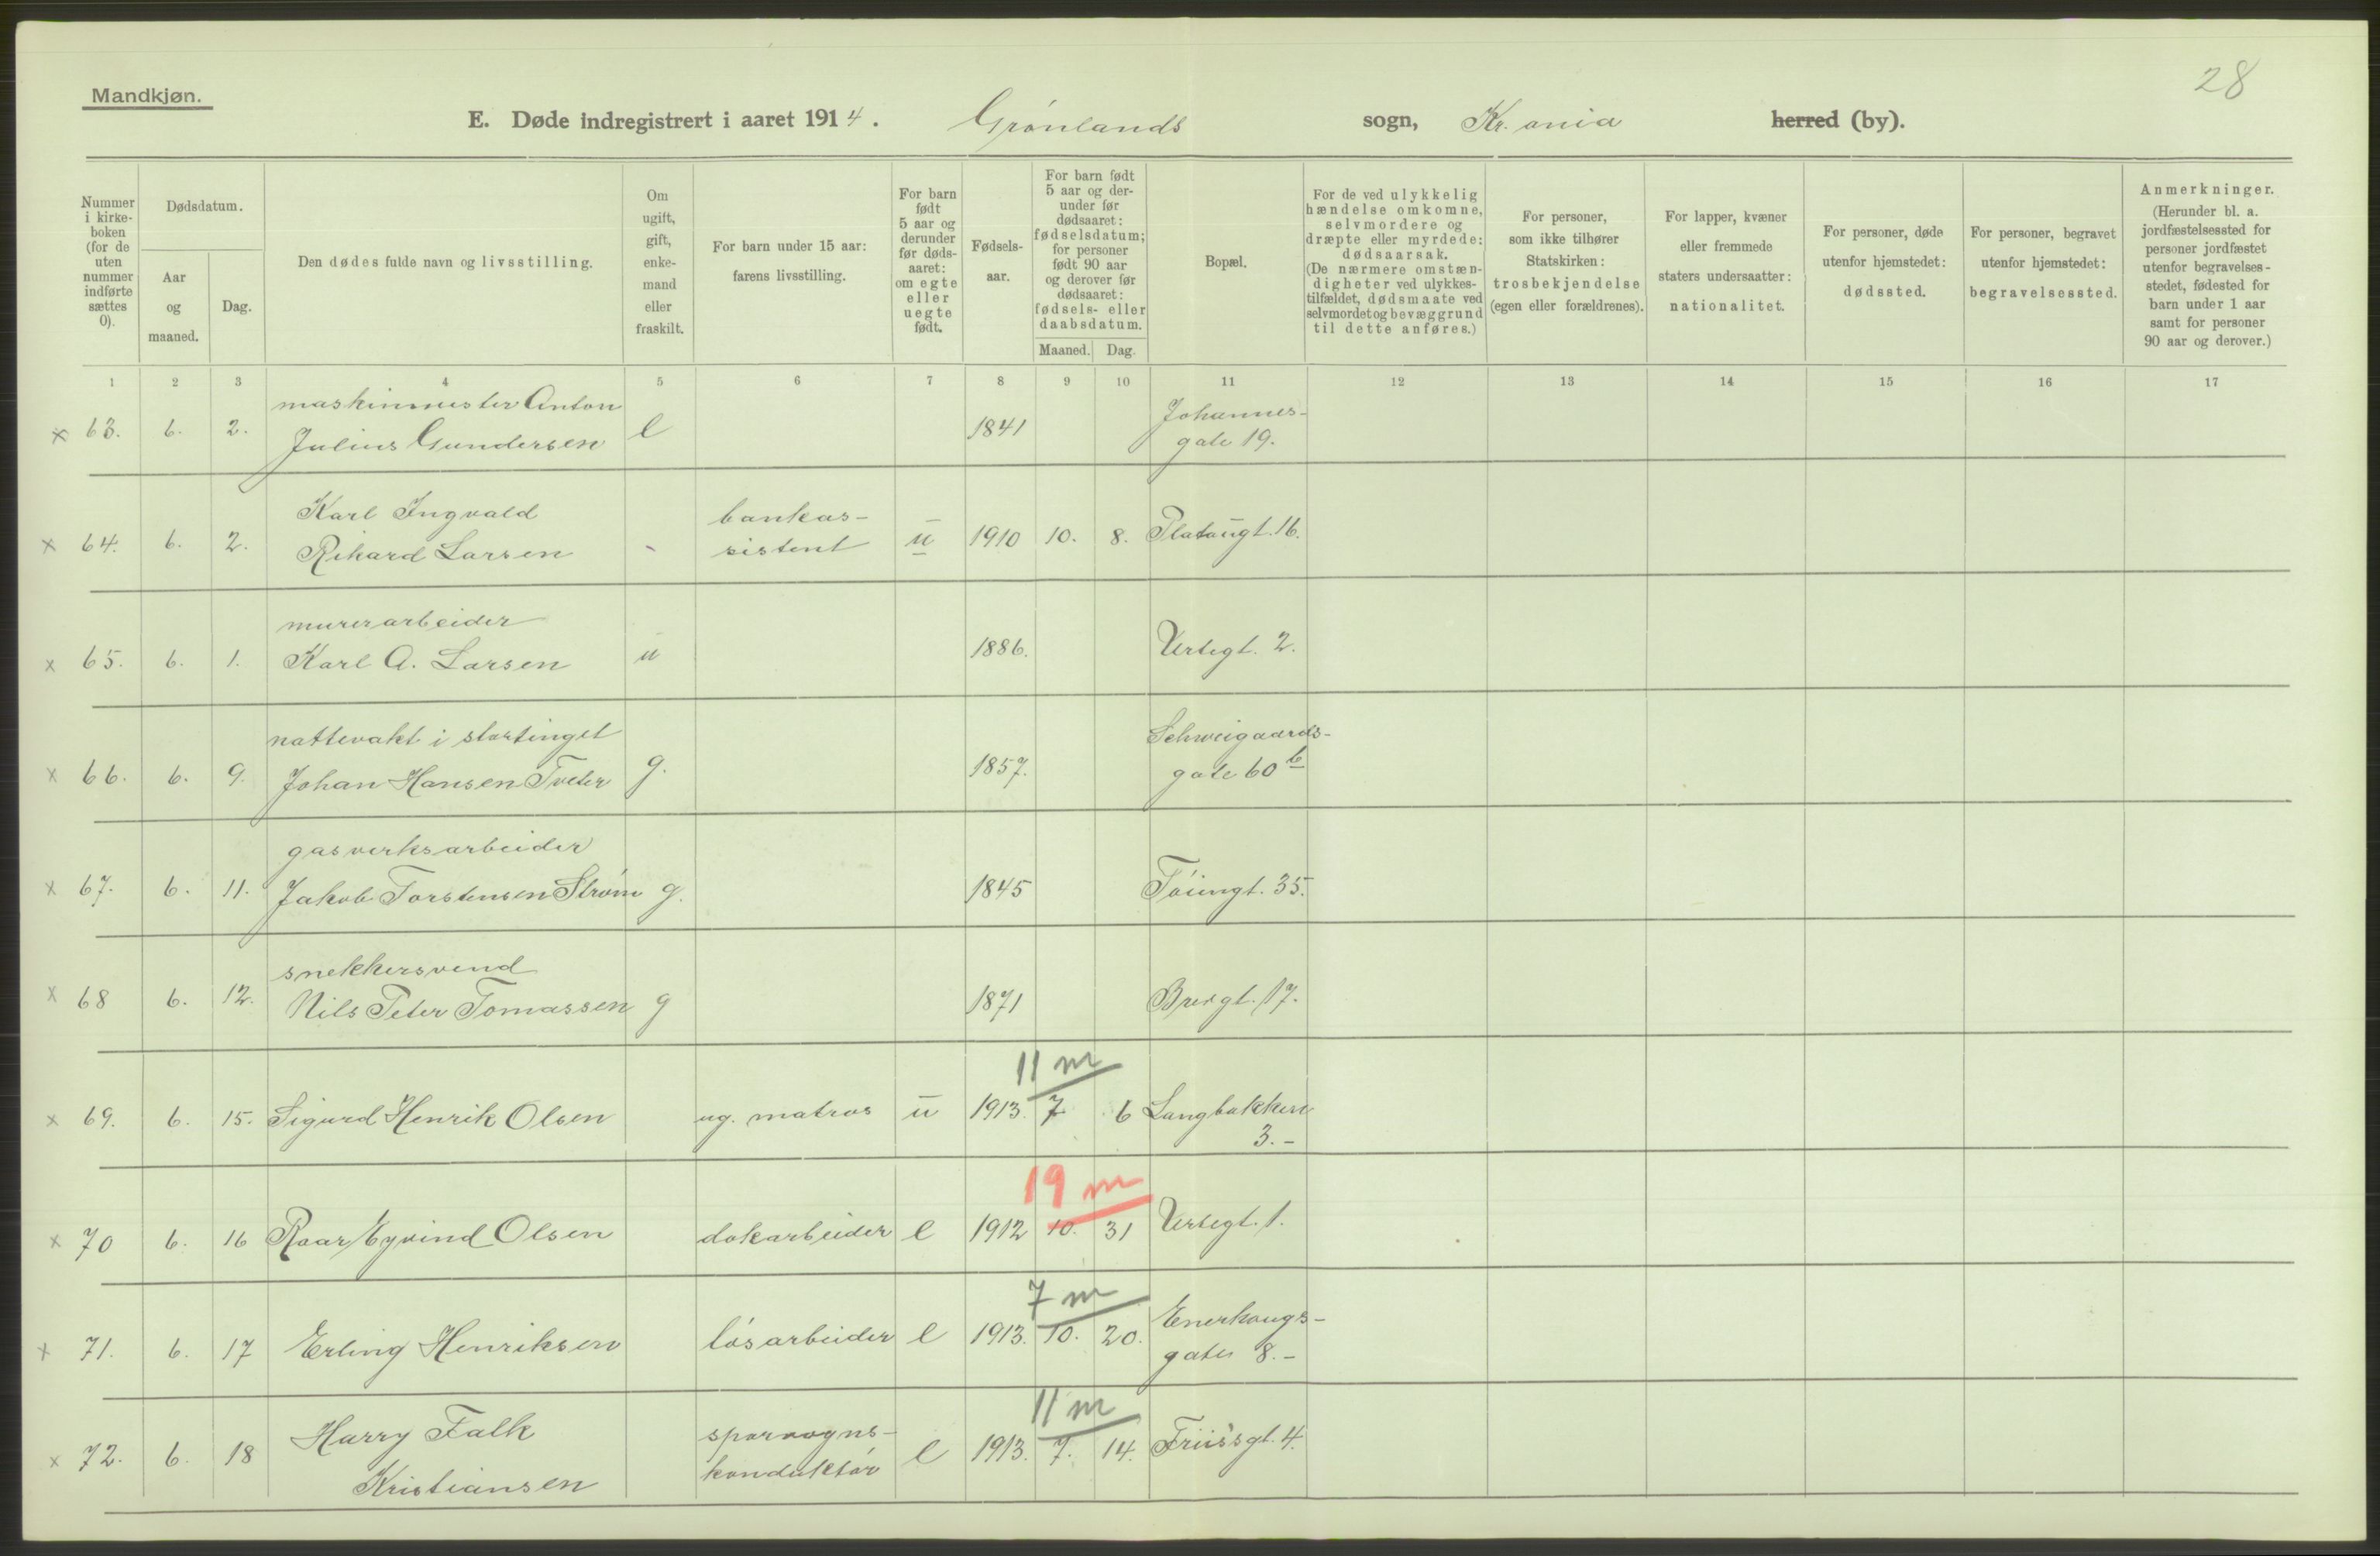 28
Mandkjøn.
E. Døde indregistrert i aaret 1914. Grønlands sogn, Kr.ania herred (by).
Nummer i kirke- boken (for de uten nummer indførte sættes 0).
Dødsdatum.
Aar og maaned.
Dag.
Den dødes fulde navn og livsstilling.
Om ugift, gift, enke- mand eller fraskilt.
For barn under 15 aar: farens livsstilling.
For barn født 5 aar og derunder før døds- aaret: om egte eller uegte født.
Fødsels- aar.
For barn født 5 aar og der- under før dødsaaret: fødselsdatum; for personer født 90 aar og derover før dødsaaret: fødsels- eller daabsdatum.
Maaned. Dag.
Bopæl.
For de ved ulykkelig hændelse omkomne, selvmordere og dræpte eller myrdede: dødsaarsak. (De nærmere omstæn- digheter ved ulykkes- tilfældet, dødsmaate ved selvmordet og bevæggrund til dette anføres.)
For personer, som ikke tilhører Statskirken: trosbekjendelse (egen eller forældrenes).
For lapper, kvæner eller fremmede staters undersaatter: nationalitet.
For personer, døde utenfor hjemstedet: dødssted.
For personer, begravet utenfor hjemstedet: begravelsessted.
Anmerkninger. (Herunder bl. a. jordfæstelsessted for personer jordfæstet utenfor begravelses- stedet, fødested for barn under 1 aar samt for personer 90 aar og derover.)
1 2 3 4 5 6 7 8 9 10 11 12 13 14 15 16 17
maskinmester Anton Johannes-
x 63. 6. 2. Julius Gundersen e 1841 gate 19.
Karl Ingvald bankas-
x 64. 6. 2. Rikard Larsen - sistent u 1910 10. 8. Platougt. 16.
murerarbeider
x 65. 6. 1. Karl A. Larsen u 1886. Urtegt. 2.
nattevakt i stortinget Schweigaards-
x 66. 6. 9. Johan Hansen Tveter g. 1857. gate 60 b
gasverksarbeider
x 67. 6. 11. Jakob Torstensen Strøm g. 1845 Tøiengt. 35.
snekkersvend
x 68 6. 12. Nils Peter Tomassen g 1871 17.
11 m
x 69. 6. 15. Sigurd Henrik Olsen ug. matros u 1913. 7 6 Langbakken
3. -
19 m
x 70 6. 16 Roar Eyvind Olsen dokarbeider e 1912 10. 31 Urtegt. 1.
7 m
Enerhaugs-
x 71. 6. 17 Erling Henriksen løsarbeider e 1913. 10. 20. gaten 8. -
11 m
Harry Falk sporvogns-
x 72. 6. 18 Kristiansen konduktør e 1913. 7. 14. Friis's gt. 4.